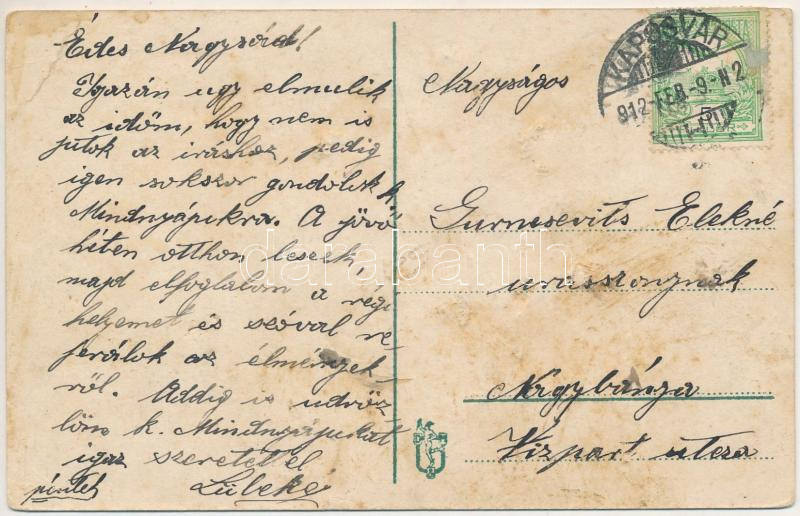 Édes Nagysád!
Igazán ugy elmulik
az időm, hogy nem is
jutok az iráshoz, pedig
igen sokszor gondolok k.
Mindnyájukra. A jövő
héten otthon leszek,
majd elfoglalom a régi
helyemet és szóval re-
ferálok az élmények-
ről. Addig is üdvöz-
löm k. Mindnyájukat
igaz szeretettel
péntek
KAPOSVÁR
912-FEB.-9-N2
5
Nagyságos
Elekné
urasszonynak
Nagybánya
Vizpart utcza
darabanth